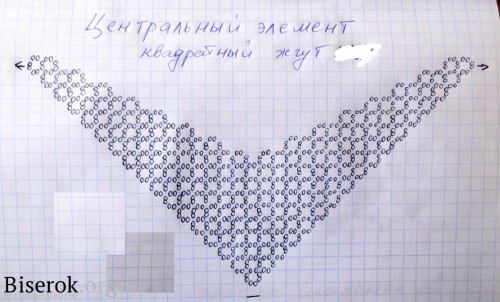 Центральный элемент
квадратный жгут
Biserok